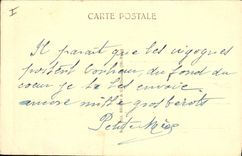 I
CARTE POSTALE
Il parait que les cigognes
portent bonheur du fond du
coeur je te les envoie
encore mille gros bécots
Petite Mère